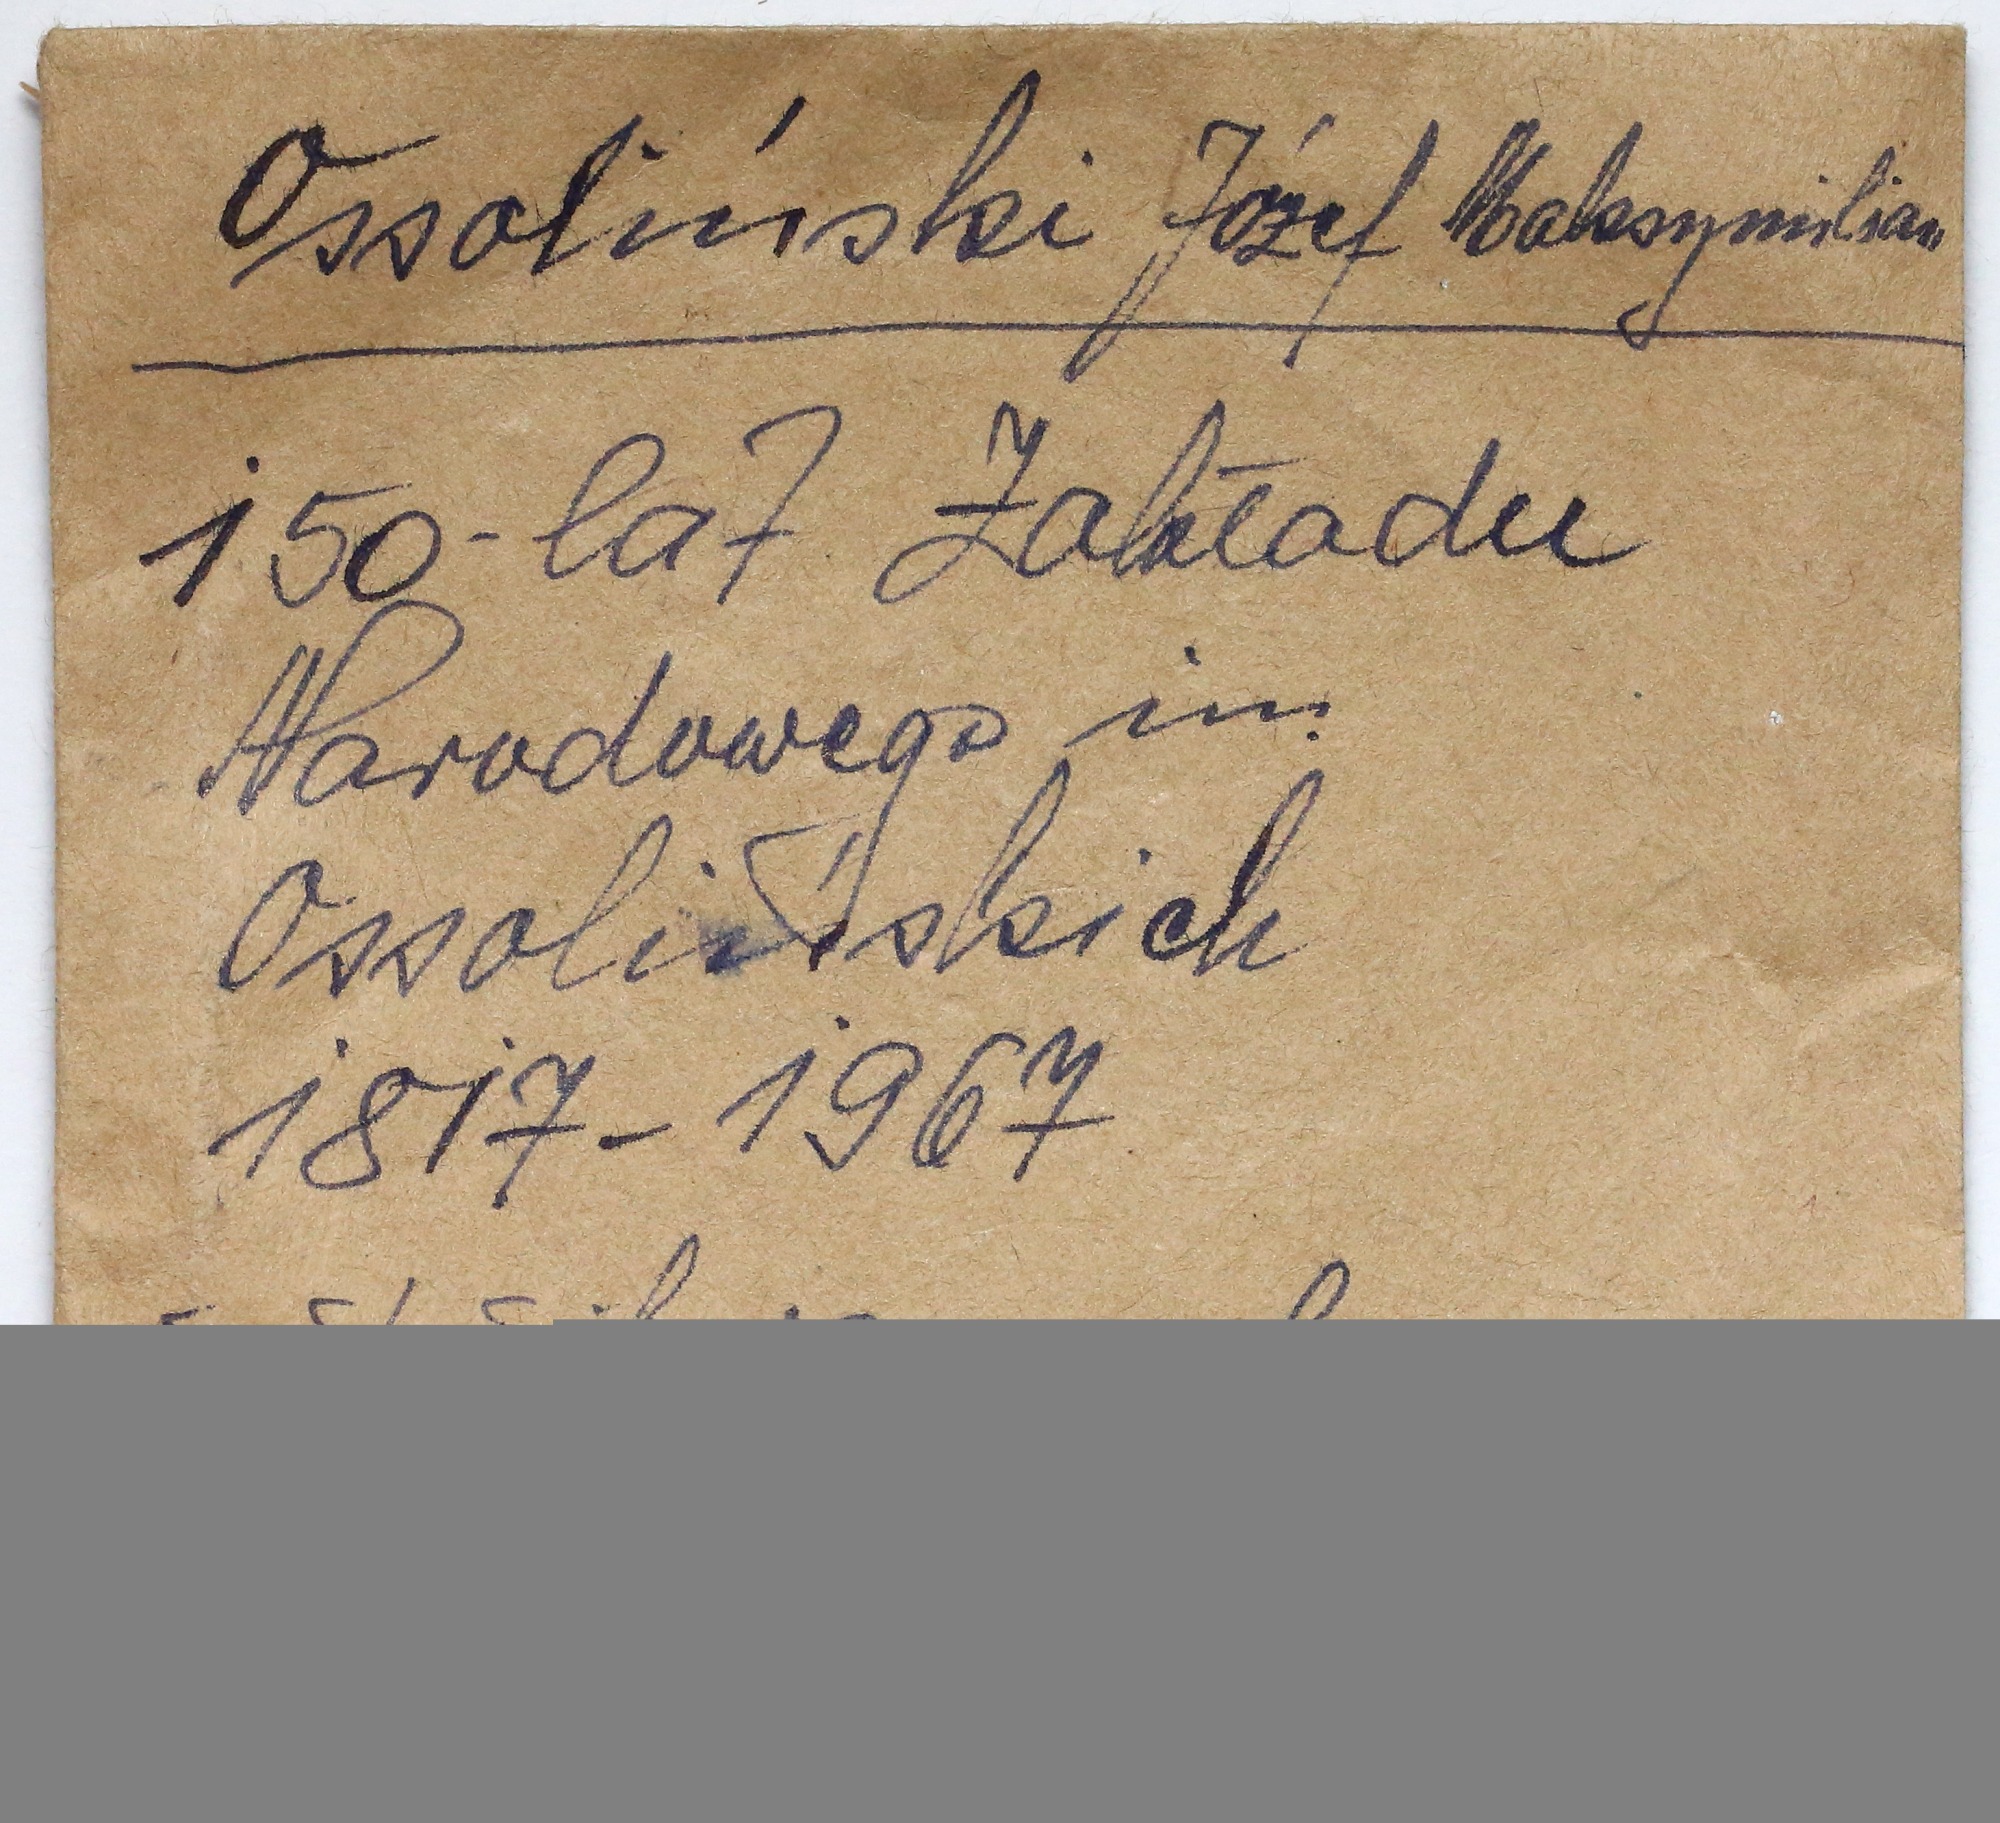 Ossoliński Józef Maksymilian
150-lat Zakładu
Narodowego im.
Ossolińskich
1817-1967